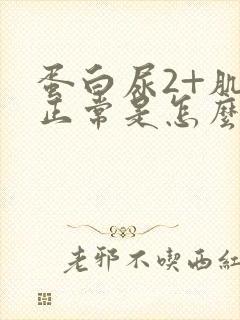 蛋白尿2+肌
正常是怎麼
老邪不喫西紅